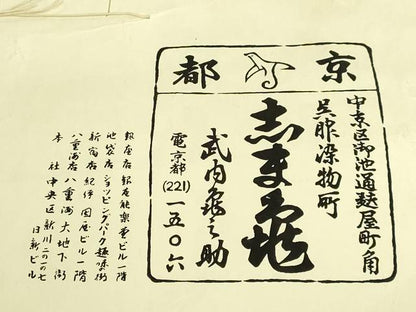 京都
中京区御池通麩屋町角
呉服染物町
志ま亀
武内亀之助
電京都(221)一五〇六
銀座店 銀座能楽堂ビル一階
池袋店 ショッピングパーク趣味街
新宿店 紀伊國屋ビル一階
八重洲店 八重洲大地下街
本社 中央区新川二の一の七
日新ビル